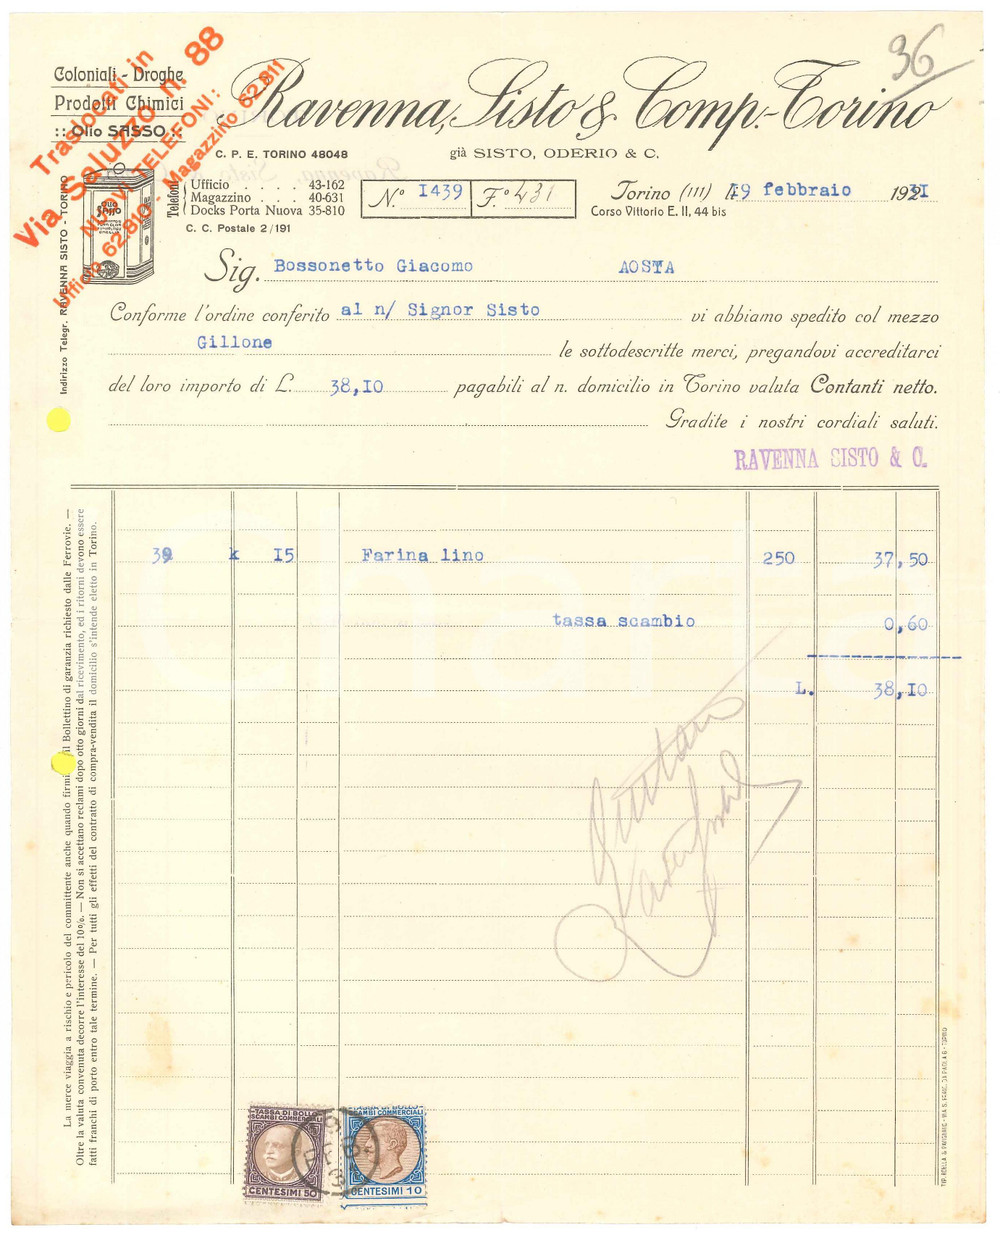 36
Coloniali - Droghe
Prodotti Chimici
:: Olio SASSO ::
Traslocati in
Via Saluzzo n. 88
NUOVI TELEFONI:
Ufficio 62.810 - Magazzino 62.811
Ravenna, Sisto & Comp. - Torino
C. P. E. TORINO 48048
già SISTO, ODERIO & C.
Telefoni
Ufficio . . . . 43-162
Magazzino . . . 40-631
Docks Porta Nuova 35-810
C. C. Postale 2/191
N.º 1439 F.º 431
Torino (111) li 19 febbraio 1931
Corso Vittorio E. II, 44 bis
OLIO SASSO
Indirizzo Telegr. RAVENNA SISTO - TORINO
Sig. Bossonetto Giacomo AOSTA
Conforme l'ordine conferito al n/ Signor Sisto vi abbiamo spedito col mezzo
Gillone le sottodescritte merci, pregandovi accreditarci
del loro importo di L. 38,10 pagabili al n. domicilio in Torino valuta Contanti netto.
Gradite i nostri cordiali saluti.
RAVENNA SISTO & C.
39 k 15 Farina lino 250 37,50
tassa scambio 0,60
L. 38,10
La merce viaggia a rischio e pericolo del committente anche quando firmi il Bollettino di garanzia richiesto dalle Ferrovie. —
Oltre la valuta convenuta decorre l'interesse del 10%. — Non si accettano reclami dopo otto giorni dal ricevimento, ed i ritorni devono essere
fatti franchi di porto entro tale termine. — Per tutti gli effetti del contratto di compra-vendita il domicilio s'intende eletto in Torino.
TASSA DI BOLLO
SCAMBI COMMERCIALI
CENTESIMI 50
TASSA DI BOLLO
SCAMBI COMMERCIALI
CENTESIMI 10